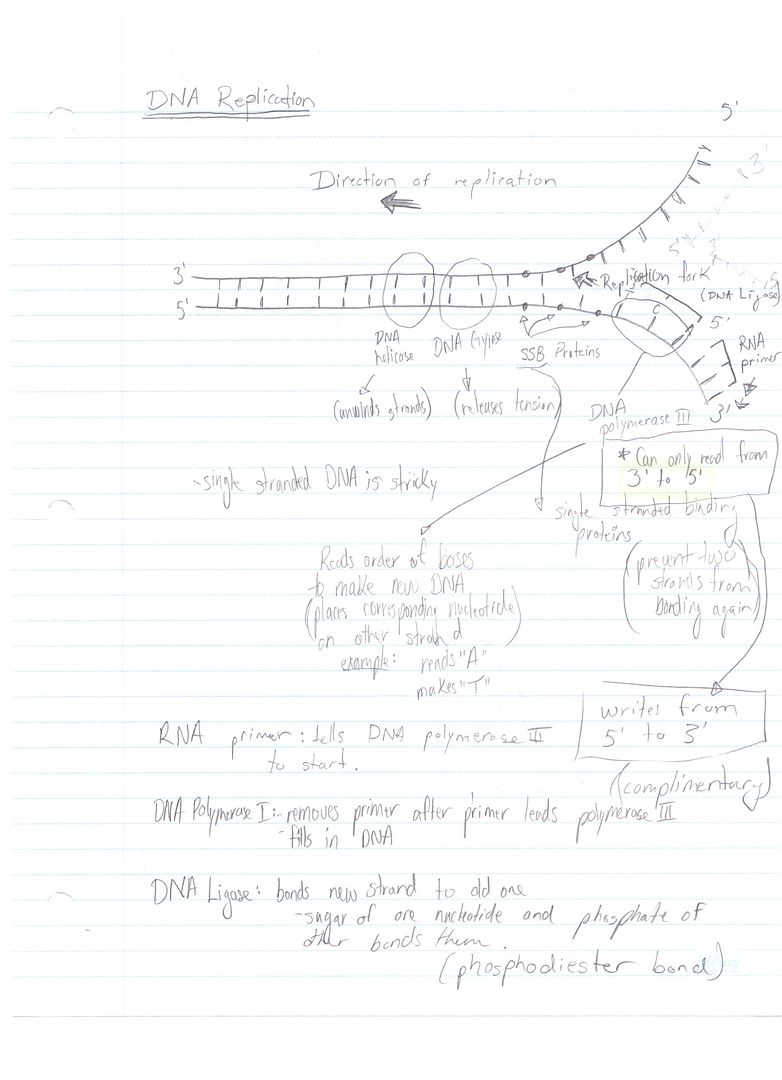 DNA Replication
5'
Direction of replication
3'
3'
5'
3'
5'
Replication fork
(DNA Ligase)
5'
5'
C
RNA
primer
3'
DNA
helicase
DNA Gyrase
SSB Proteins
(unwinds strands)
(releases tension)
DNA
polymerase III
* Can only read from
3' to 5'
-single stranded DNA is sticky
single stranded binding
proteins
(prevent two
strands from
bonding again)
Reads order of bases
to make new DNA
(places corresponding nucleotide
on other strand)
example: reads "A"
makes "T"
writes from
5' to 3'
(complimentary)
RNA primer: tells DNA polymerase III
to start.
DNA Polymerase I:-removes primer after primer leads polymerase III
-fills in DNA
DNA Ligase: bonds new strand to old one
-sugar of one nucleotide and phosphate of
other bonds them.
(phosphodiester bond)